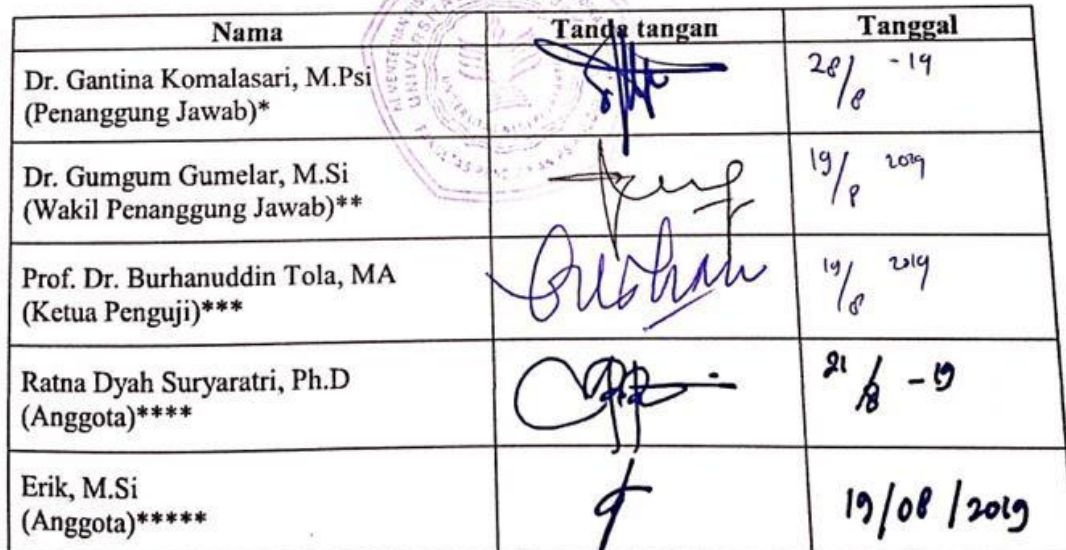 Nama Tanda tangan Tanggal
Dr. Gantina Komalasari, M.Psi
(Penanggung Jawab)*
28/8 - 19
Dr. Gumgum Gumelar, M.Si
(Wakil Penanggung Jawab)**
19/8 2019
Prof. Dr. Burhanuddin Tola, MA
(Ketua Penguji)***
19/8 2019
Ratna Dyah Suryaratri, Ph.D
(Anggota)****
21/8 - 19
Erik, M.Si
(Anggota)*****
19/08/2019